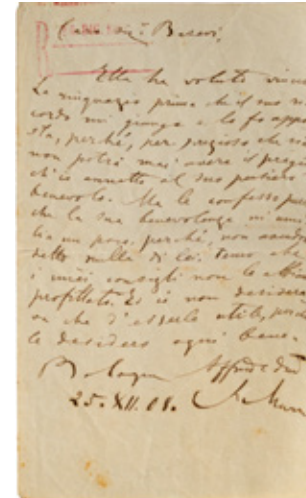 Caro Sig. Baravi,
Ella ha voluto
La ringrazio prima che il suo
cordo mi giunga e lo fo
sta, perché, per prezioso che
non potrà mai avere il pregio
ch'io annetto al suo pensiero
benevolo. Ma le confesso pure
che la sua benevolenza mi
lia un poco, perché, non
detto nulla di lei. Temo che
i miei consigli non le
profittato. Ed io non desidero
se che d'esserle utile, perché
le desidero ogni bene.
Bologna
25. XII. 08.